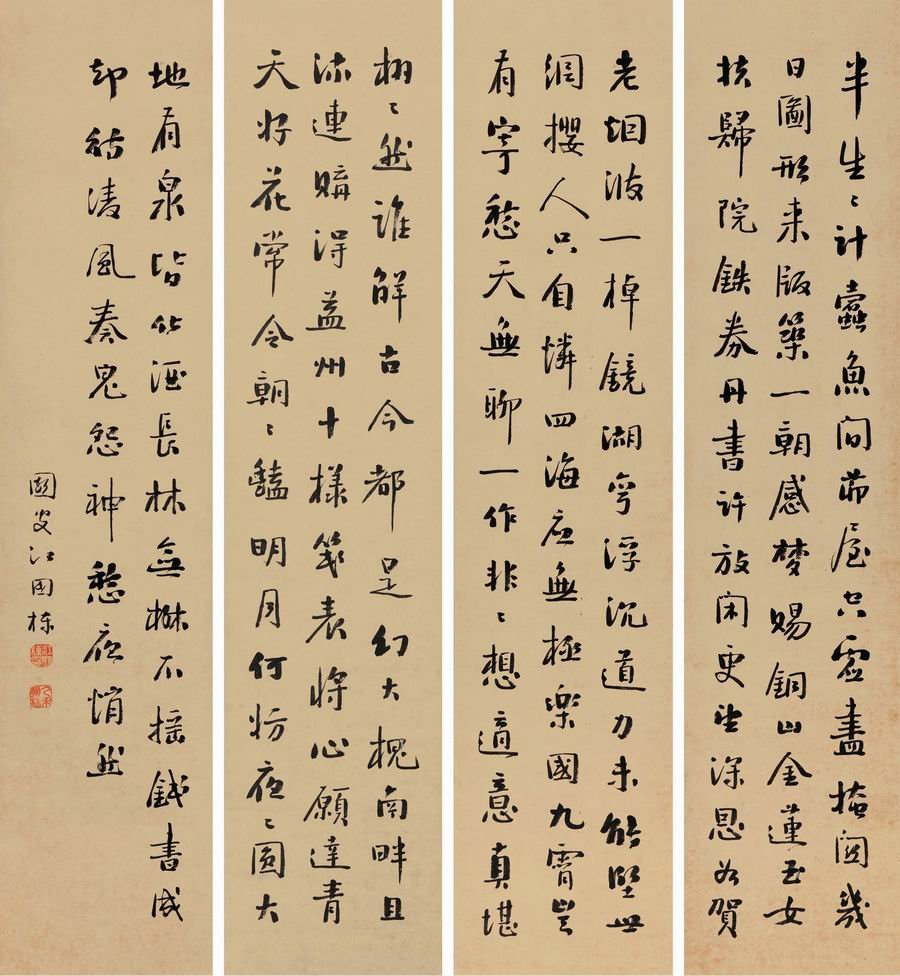 半生〻計蠹魚間茆屋空虛晝掩關幾
日圖形來版築一朝感夢賜銅山金蓮玉女
扶歸院鐵券丹書許放閑更望深恩如賀
老烟波一棹鏡湖灣浮沉道力未能堅世
網攖人只自憐四海應無極樂國九霄豈
有寄愁天無聊一作非〻想適意真堪
栩〻然誰解古今都是幻大槐南畔且
流連賸得益州十樣箋表將心願達青
天好花常令朝〻豔明月何妨夜〻圓大
地有泉皆化酒長林無樹不搖錢書成
却待凌風奏鬼怨神愁夜悄然
叟江國棟